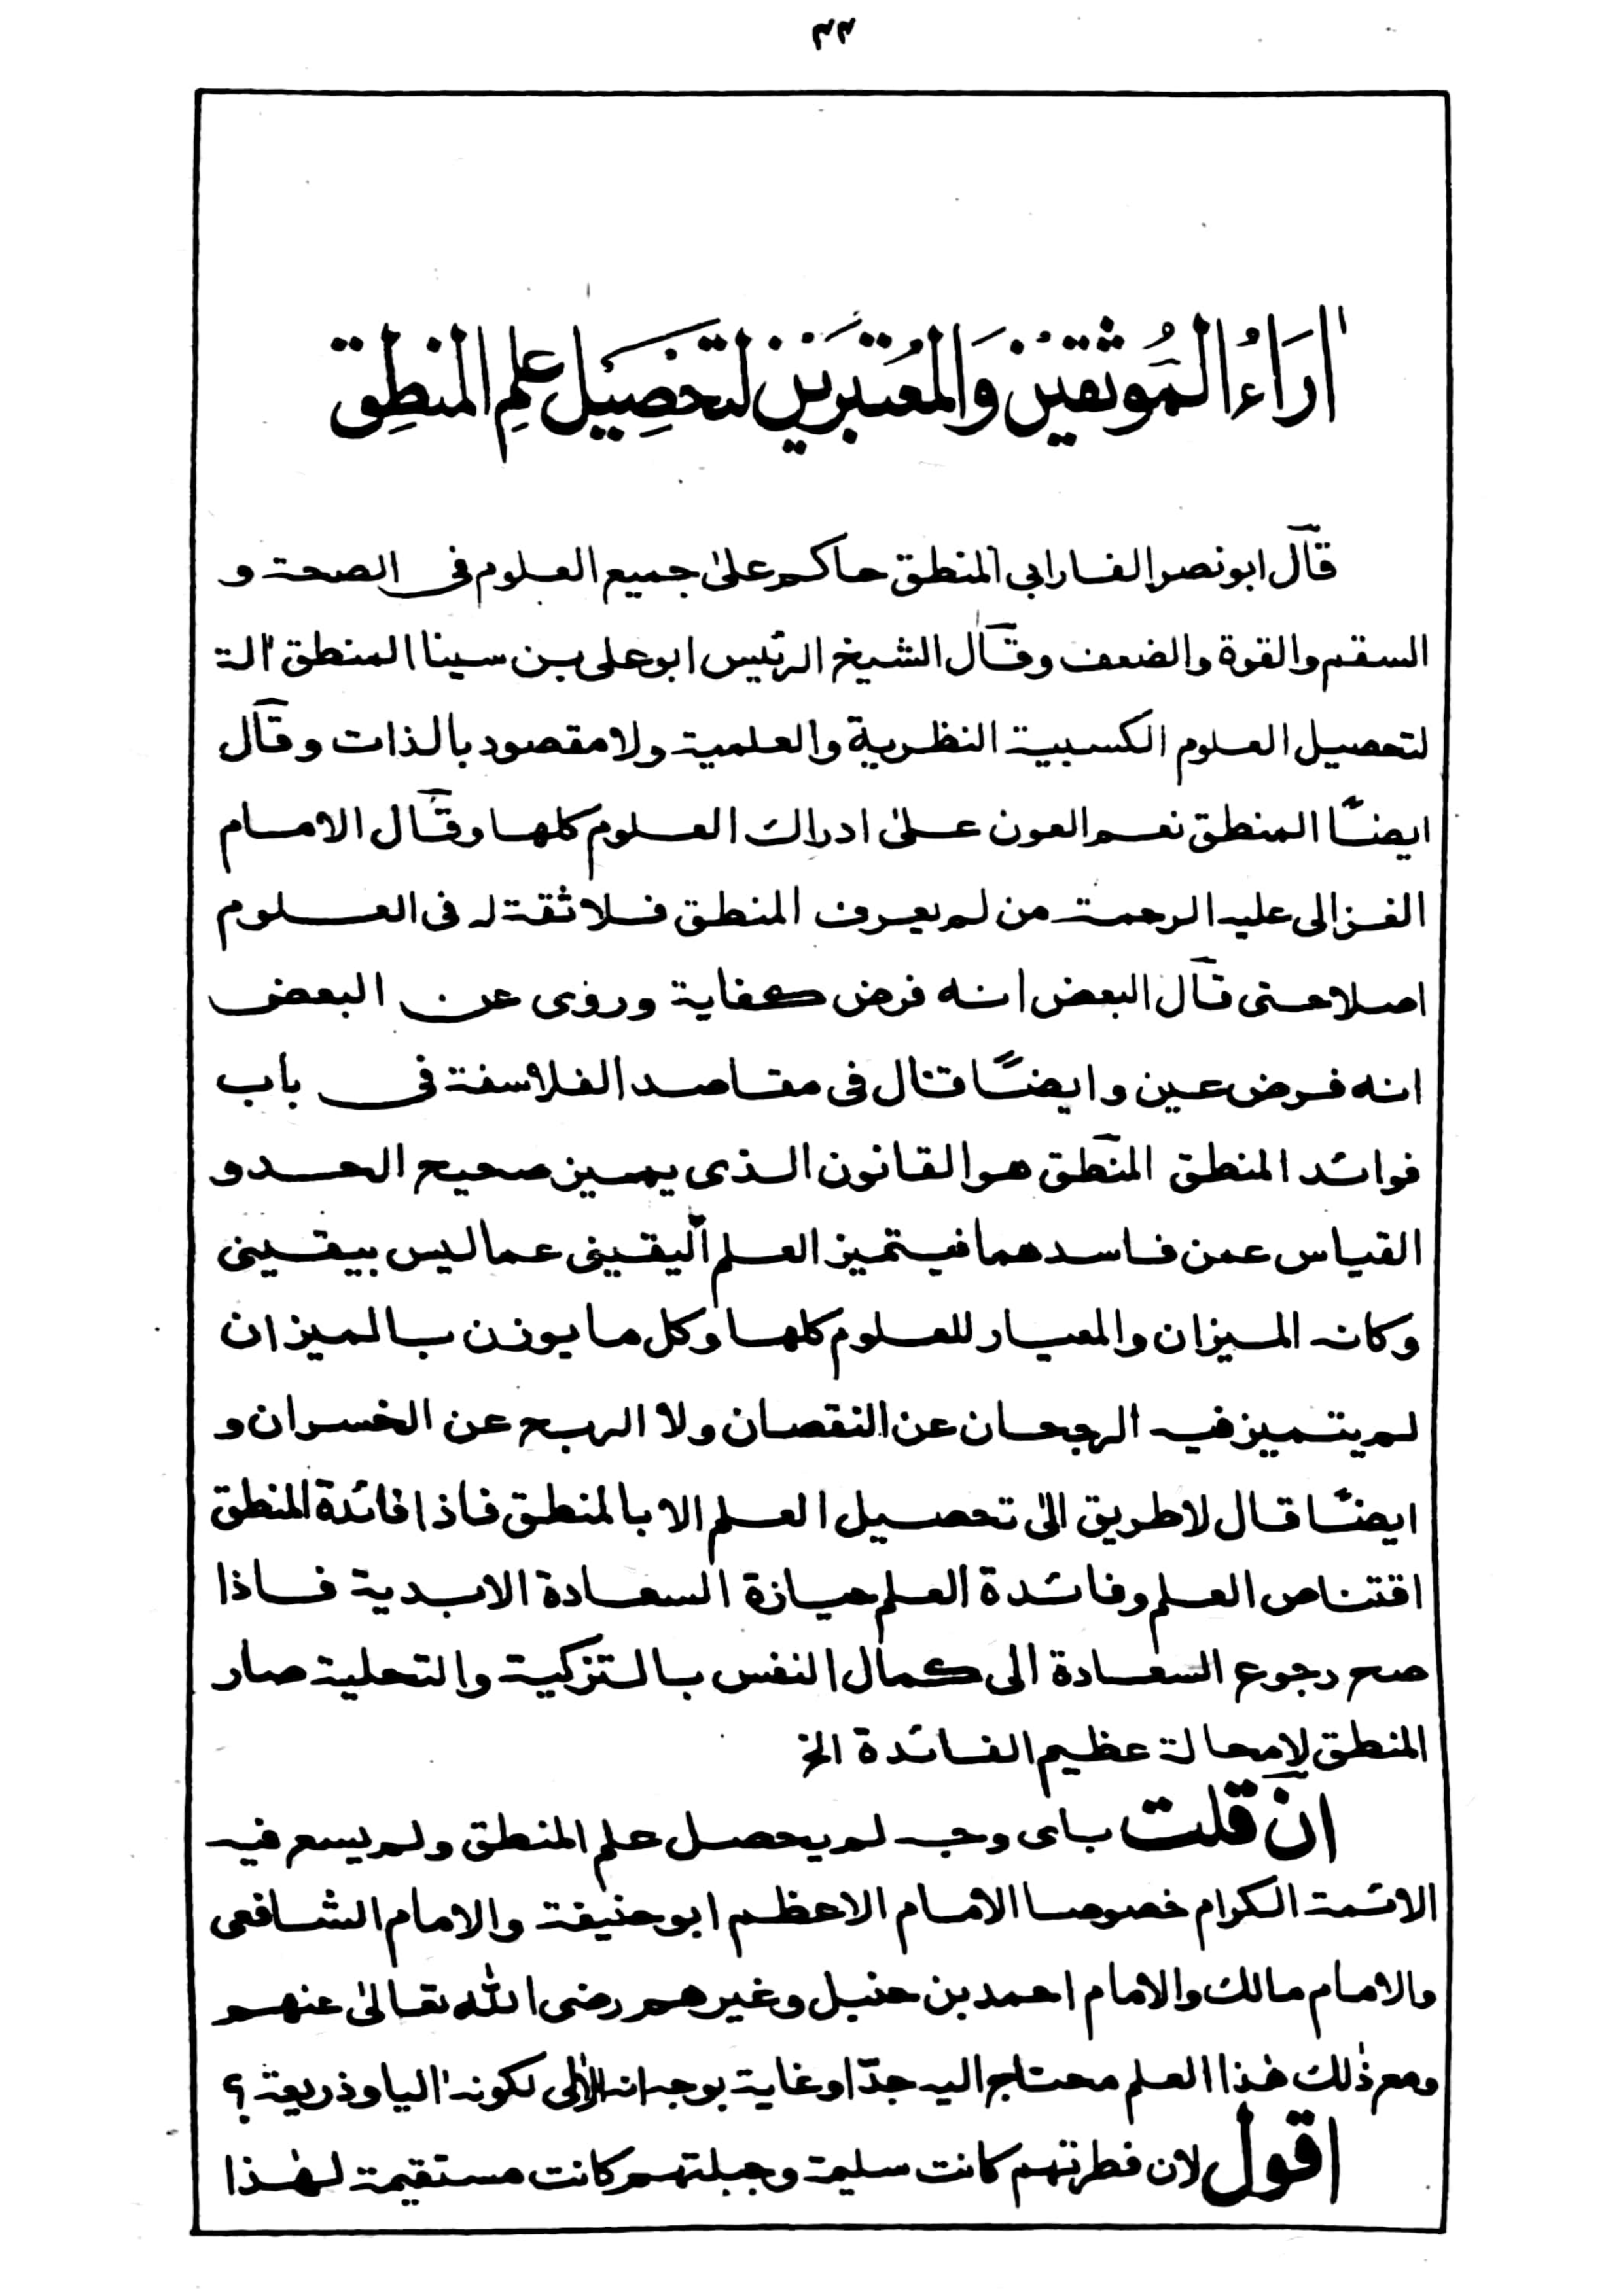 اٰرَاءُ المُوثقینَ وَالمُعتبَرِینَ لتحصِیل علمِ المنطِق
قال ابو نصر الفارابی المنطق حاکم علیٰ جمیع العلوم فی الصحة و
السقم والقوة والضعف وقال الشیخ الرئیس ابو علی بن سینا المنطق اٰلة
لتحصیل العلوم الکسبیة النظریة والعلمیة ولا مقصود بالذات وقال
ایضًا المنطق نعم العون علیٰ ادراك العلوم کلها وقال الامام
الغزالی علیه الرحمة من لم یعرف المنطق فلا ثقة له فی العلوم
اصلا حتی قال البعض انه فرض کفایة وروی عن البعض
انه فرض عین وایضًا قال فی مقاصد الفلاسفة فی باب
فوائد المنطق المنطق هو القانون الذی یمیز صحیح الحد و
القیاس عن فاسدهما فیتمیز العلم الیقینی عما لیس بیقینی
وکانه المیزان والمعیار للعلوم کلها وکل ما یوزن بالمیزان
لم یتمیز فیه الرجحان عن النقصان ولا الربح عن الخسران و
ایضًا قال لا طریق الیٰ تحصیل العلم الا بالمنطق فاذا فائدة المنطق
اقتناص العلم وفائدة العلم حیازة السعادة الابدیة فاذا
صح رجوع السعادة الی کمال النفس بالتزکیة والتحلیة صار
المنطق لا محالة عظیم الفائدة الخ
ان قلت بای وجه لم یحصل علم المنطق ولم یسع فیه
الائمة الکرام خصوصا الامام الاعظم ابو حنیفة والامام الشافعی
والامام مالك والامام احمد بن حنبل وغیرهم رضی الله تعالیٰ عنهم
ومع ذٰلك هٰذا العلم محتاج الیه جدّا وغایة بوجه انه لکونه اٰلیا وذریعة ؟
اقول لان فطرتهم کانت سلیمة وجبلتهم کانت مستقیمة لهٰذا